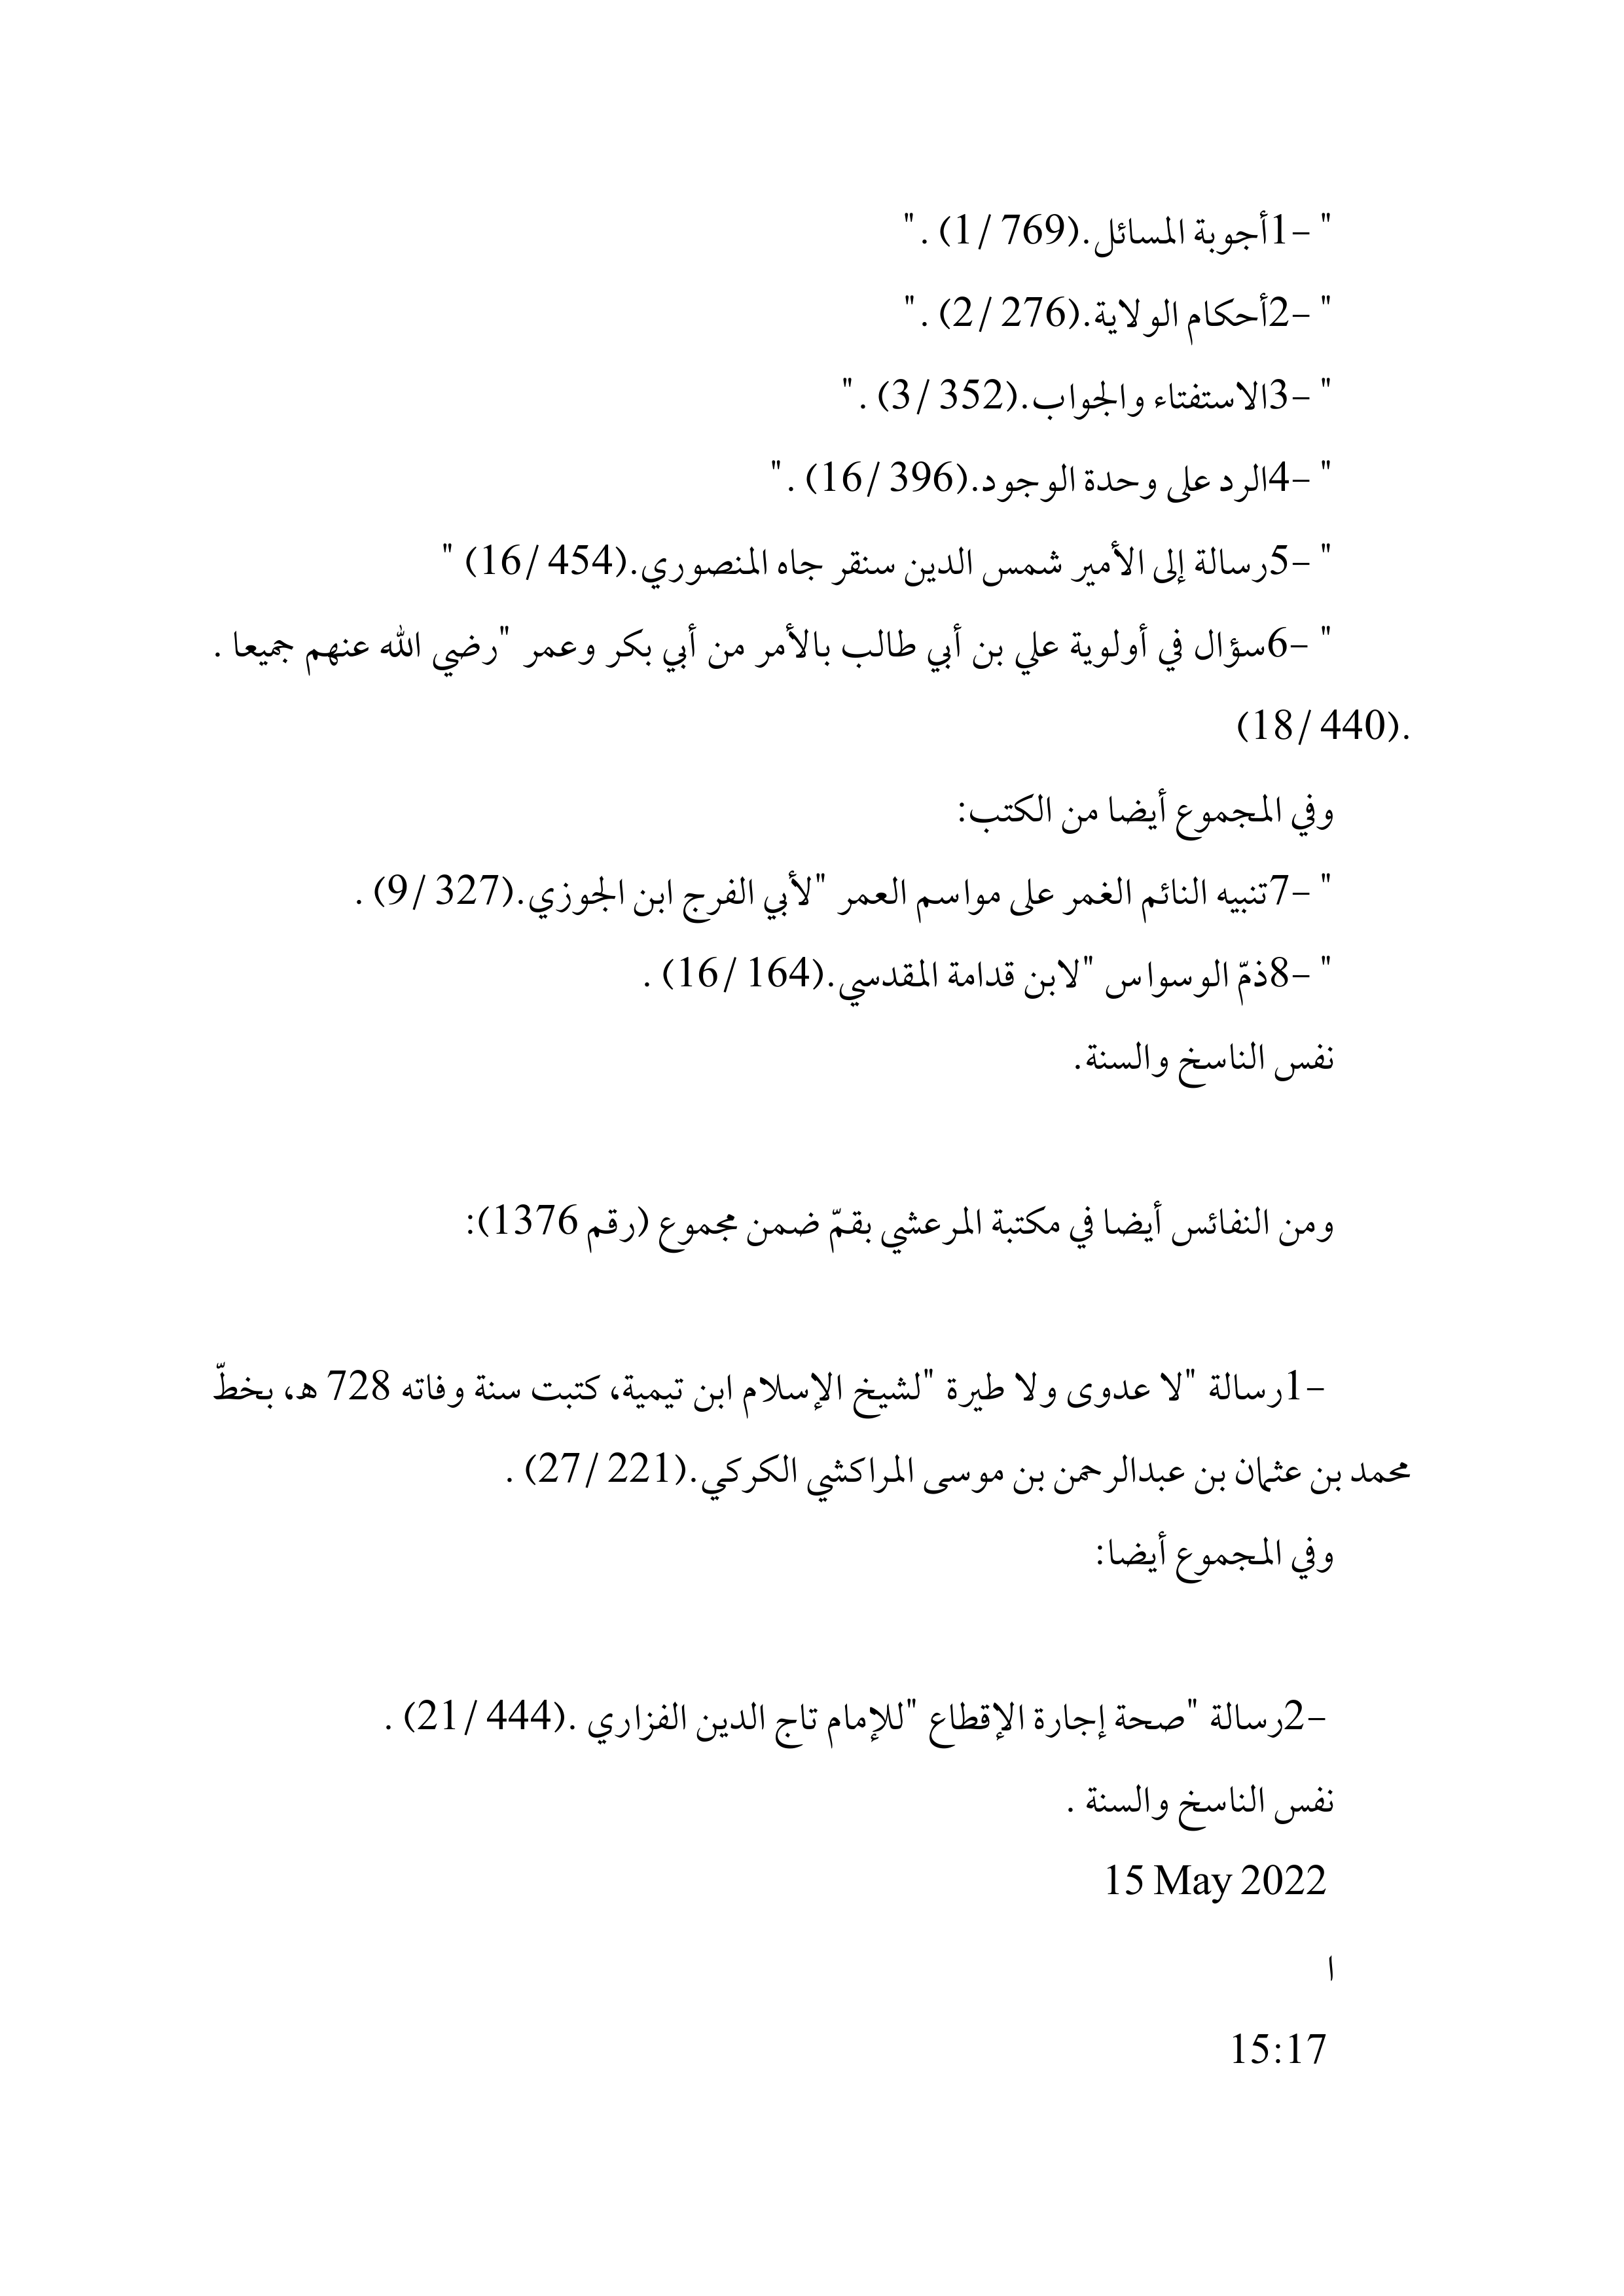 " -1أجوبة المسائل.(769 /1) . "
" -2أحكام الولاية.(276 /2) . "
" -3الاستفتاء والجواب.(352 /3) . "
" -4الرد على وحدة الوجود.(396 /16) . "
" -5رسالة إلى الأمير شمس الدين سنقر جاه المنصوري.(454 /16) "
" -6سؤال في أولوية علي بن أبي طالب بالأمر من أبي بكر وعمر "رضي الله عنهم جميعا .
.(440 /18)
وفي المجموع أيضا من الكتب:
" -7تنبيه النائم الغمر على مواسم العمر "لأبي الفرج ابن الجوزي.(327 /9) .
" -8ذمّ الوسواس "لابن قدامة المقدسي.(164 /16) .
نفس الناسخ والسنة.
ومن النفائس أيضا في مكتبة المرعشي بقمّ ضمن مجموع (رقم 1376):
-1رسالة "لا عدوى ولا طيرة "لشيخ الإسلام ابن تيمية، كتبت سنة وفاته 728 هـ، بخطّ
محمد بن عثمان بن عبدالرحمن بن موسى المراكشي الكركي.(221 /27) .
وفي المجموع أيضا:
-2رسالة "صحة إجارة الإقطاع "للإمام تاج الدين الفزاري .(444 /21) .
نفس الناسخ والسنة .
15 May 2022
ا
15:17